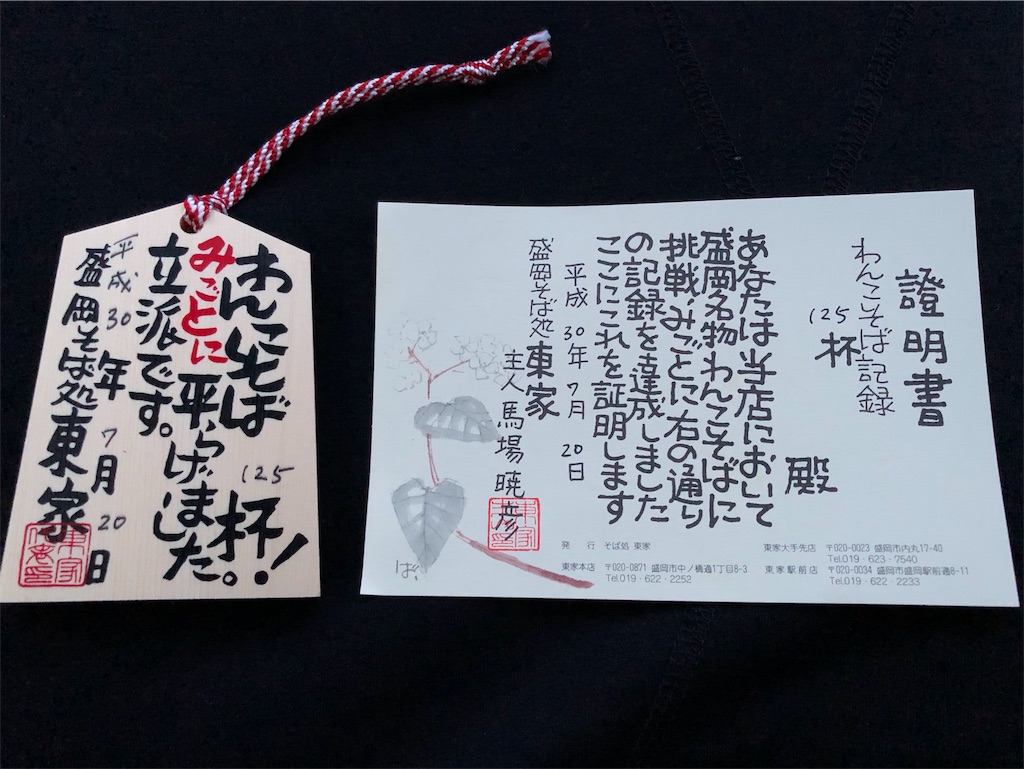 わんこそば 125 杯!
みごとに平らげました。
立派です。
平成 30 年 7 月 20 日
盛岡そば処 東家
證明書
わんこそば記録
125 杯
殿
あなたは当店において
盛岡名物わんこそばに
挑戦、みごとに右の通り
の記録を達成しました
ここにこれを証明します
平成 30 年 7 月 20 日
盛岡そば処 東家
主人 馬場暁彦
ば、
発 行 そば処 東家
東家本店 〒020-0871 盛岡市中ノ橋通1丁目8-3
Tel.019・622・2252
東家大手先店 〒020-0023 盛岡市内丸17-40
Tel.019・623・7540
東家駅前店 〒020-0034 盛岡市盛岡駅前通8-11
Tel.019・622・2233